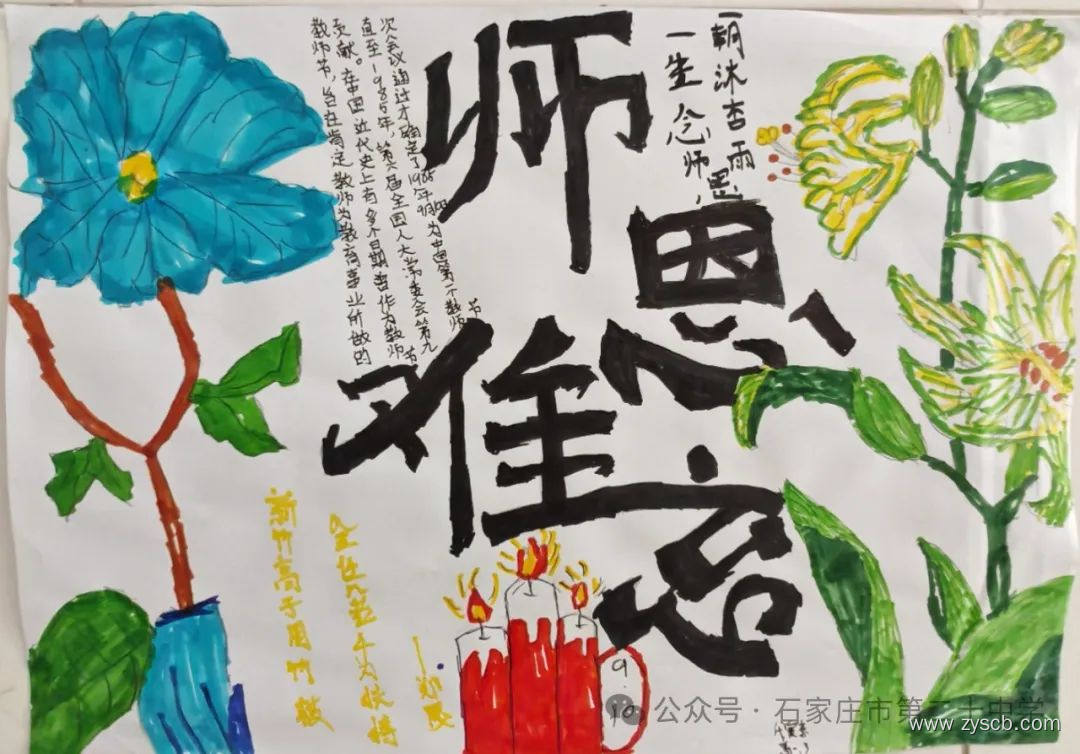 师恩难忘
一朝沐杏雨
一生念师恩
教师节,旨在肯定教师为教育事业所做的
贡献。在中国近代史上有多个日期曾作为教师节
直至1985年,第六届全国人大常委会第九
次会议通过才确定了1985年9月10日为中国第一个教师节
新竹高于旧竹枝
全任凡老干为扶持
——郑燮
9.10
公众号·石家庄市第二十中学
www.zyscb.com